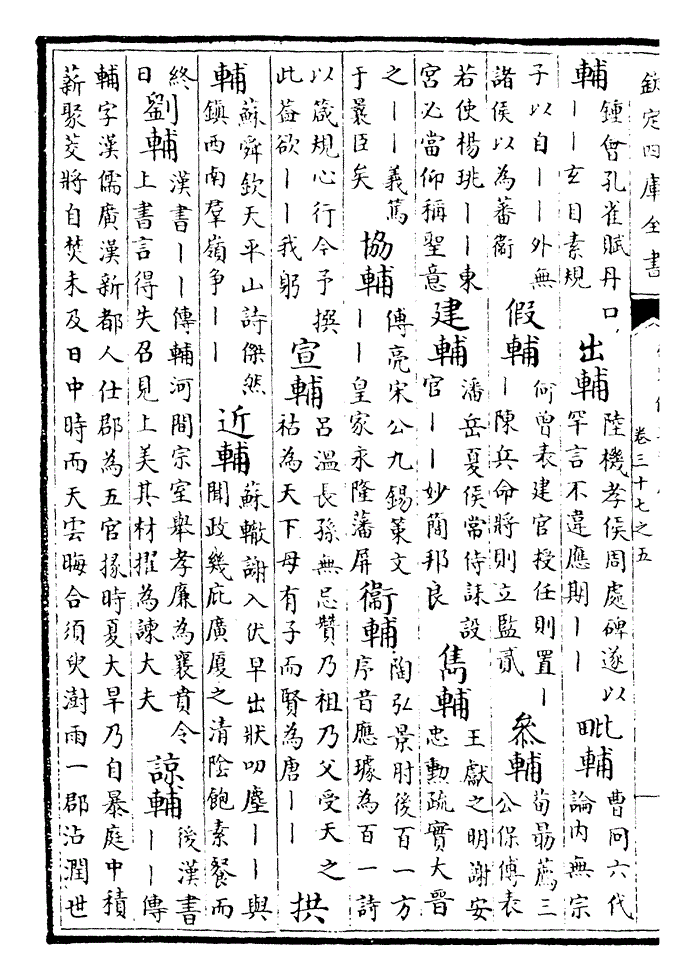 欽定四庫全書
卷三十七之五
輔
鍾會孔雀賦丹口
丨丨玄目素規
出輔
陸機孝侯周處碑遂以
罕言不違應期丨丨
毗輔
曹冏六代
論内無宗
子以自丨丨外無
諸侯以為蕃衞
假輔
何曾表建官授任則置丨
丨陳兵命將則立監貳
叅輔
荀勗薦三
公保傅表
若使楊珧丨丨東
宫必當仰稱聖意
建輔
潘岳夏侯常侍誄設
官丨丨妙簡邦良
雋輔
王獻之明謝安
忠勲疏實大晉
之丨丨義篤
于曩臣矣
協輔
傅亮宋公九錫策文
丨丨皇家永隆藩屏
衞輔
陶弘景肘後百一方
序昔應璩為百一詩
以箴規心行今予撰
此葢欲丨丨我躬
宣輔
吕溫長孫無忌贊乃祖乃父受天之
祜為天下母有子而賢為唐丨丨
拱
輔
蘇舜欽天平山詩傑然
鎮西南羣嶺争丨丨
近輔
蘇轍謝入伏早出狀叨塵丨丨與
聞政幾庇廣厦之清陰飽素餐而
終
日
劉輔
漢書丨丨傳輔河間宗室舉孝廉為襄賁令
上書言得失召見上美其材擢為諫大夫
諒輔
後漢書
丨丨傳
輔字漢儒廣漢新都人仕郡為五官掾時夏大旱乃自暴庭中積
薪聚茭將自焚未及日中時而天雲晦合須臾澍雨一郡沾潤世